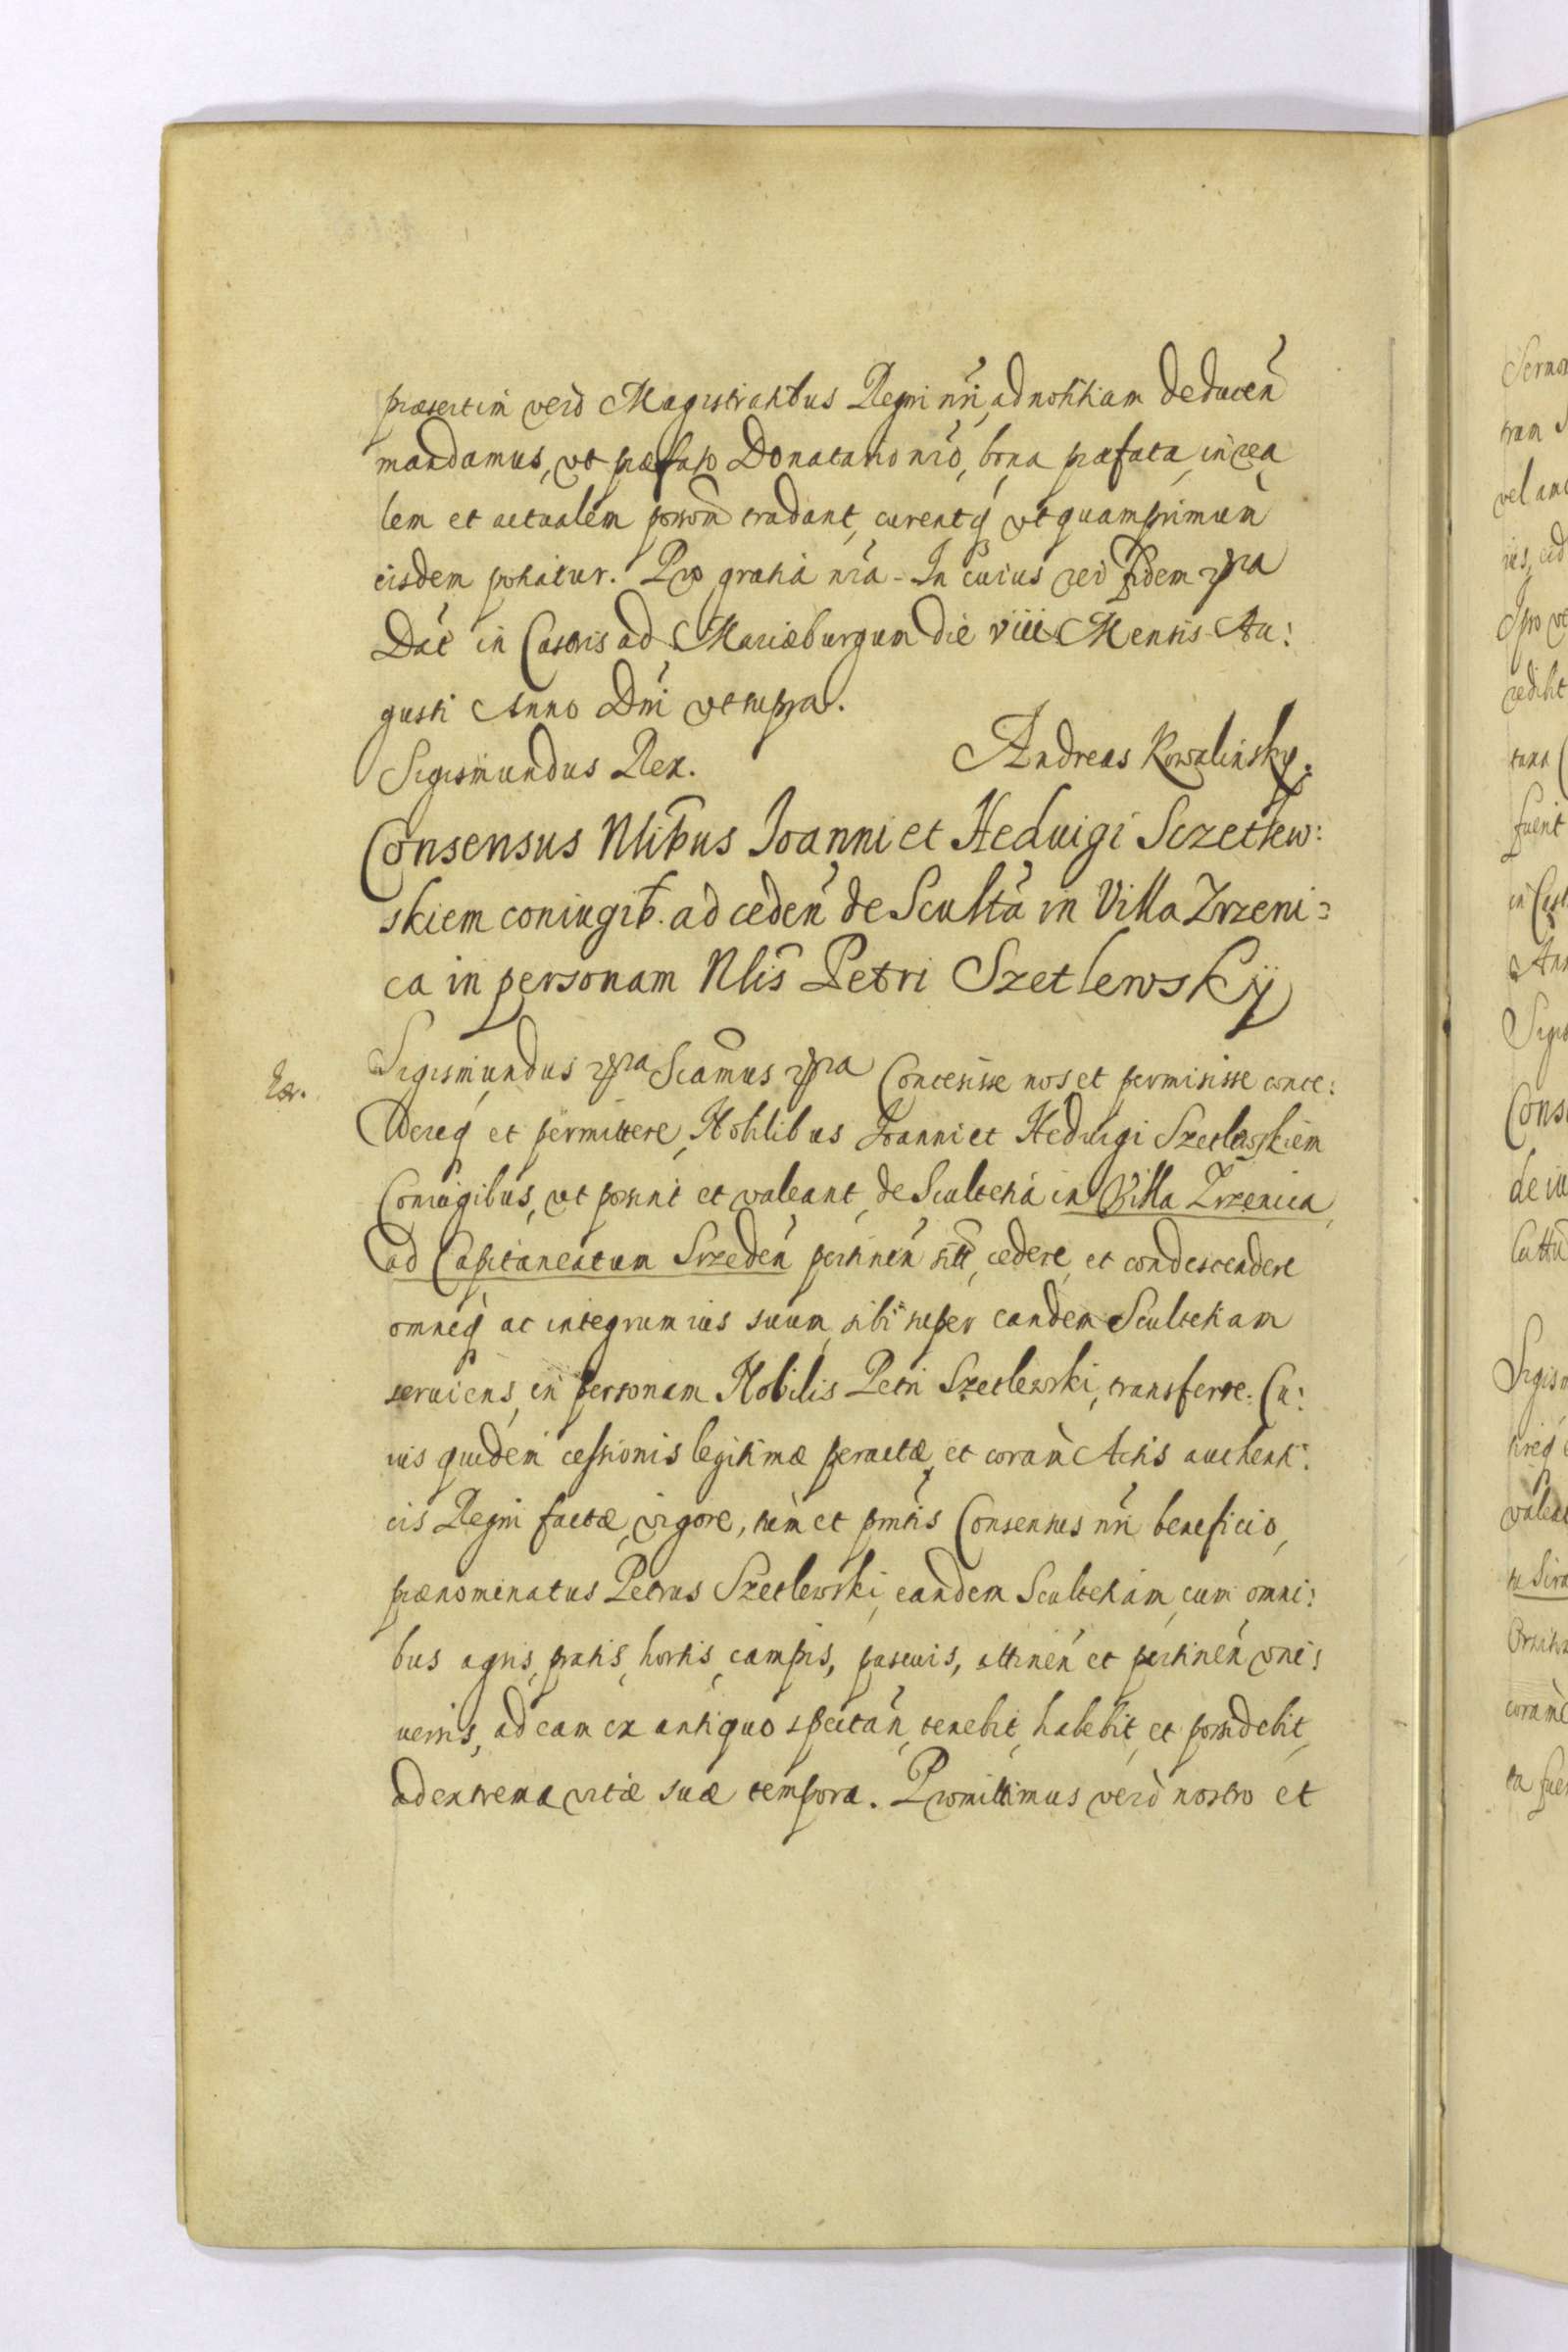 præsertim verò Magistratibus Regni nri, ad notitiam deducen
mandamus, vt præfato Donatario nrõ, bona præfata, in rea
lem et actualem possom tradant, curentq vt quamprimum
eisdem potiatur. Pro gratia nrã. In cuius rei fidem etc.
Dat in Castris ad Mariæburgum die viii Mensis Au:
gusti Anno Dni vt supra.
Sigismundus Rex. Andreas Kowalinsky.
Consensus Nlibus Ioanni et Heduigi Sczetlew:
skiem coniugib. ad ceden de Sculta in Villa Zrzeni:
ca in personam Nlis Petri Szetlewskÿ
Sigismundus etc. Sciamus etc. Concessisse nos et permisisse conce:
dereq et permittere, Nobilibus Ioanni et Heduigi Szetlewskiem
Coniugibus, vt possint et valeant, de Scultetia in Villa Zrzenica,
ad Capitaneatum Srzeden pertinen sitt, cedere, et condescendere
omneq ac integrum ius suum, sibi super eandem Scultetiam
seruiens, in personam Nobilis Petri Szetlewski, transferre. Cu:
ius quidem cessionis legitimæ peractæ, et coram Actis authenti:
cis Regni factæ, vigore, tum et pntis Consensus nri beneficio,
prænominatus Petrus Szetlewski, eandem Scultetiam, cum omni:
bus agris, pratis, hortis, campis, pascuis, attinen et pertinen vni:
uersis, ad eam ex antiquo spectan, tenebit, habebit, et possidebit,
ad extrema vitæ suæ tempora. Promittimus verò nostro et